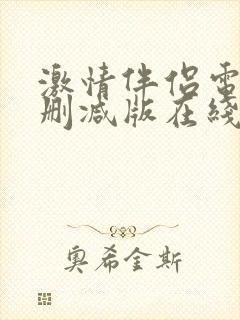 激情伴侣電
删减版在綫
奥希金斯